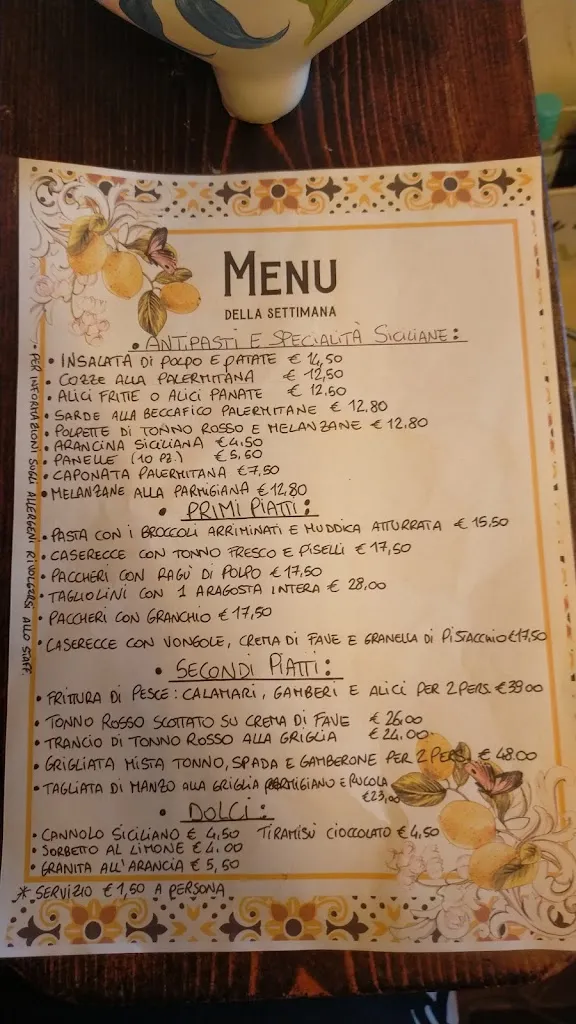 MENU
DELLA SETTIMANA
• ANTIPASTI E SPECIALITÀ SICILIANE:
• INSALATA DI POLPO E PATATE € 14,50
• COZZE ALLA PALERMITANA € 12,50
• ALICI FRITTE O ALICI PANATE € 12,50
• SARDE ALLA BECCAFICO PALERMITANE € 12.80
• POLPETTE DI TONNO ROSSO E MELANZANE € 12.80
• ARANCINA SICILIANA € 4.50
• PANELLE (10 PZ.) € 5,50
• CAPONATA PALERMITANA € 7,50
• MELANZANE ALLA PARMIGIANA € 12,80
• PRIMI PIATTI:
• PASTA CON I BROCCOLI ARRIMINATI E MUDDICA ATTURRATA € 15,50
• CASERECCE CON TONNO FRESCO E PISELLI € 17,50
• PACCHERI CON RAGÙ DI POLPO € 17,50
• TAGLIOLINI CON 1 ARAGOSTA INTERA € 28,00
• PACCHERI CON GRANCHIO € 17,50
• CASERECCE CON VONGOLE, CREMA DI FAVE E GRANELLA DI PISTACCHIO € 17,50
• SECONDI PIATTI:
• FRITTURA DI PESCE: CALAMARI, GAMBERI E ALICI PER 2 PERS. € 39.00
• TONNO ROSSO SCOTTATO SU CREMA DI FAVE € 26.00
• TRANCIO DI TONNO ROSSO ALLA GRIGLIA € 24.00
• GRIGLIATA MISTA TONNO, SPADA E GAMBERONE PER 2 PERS. € 48.00
• TAGLIATA DI MANZO ALLA GRIGLIA PARMIGIANO E RUCOLA
€ 23,00
• DOLCI:
• CANNOLO SICILIANO € 4,50 TIRAMISÙ CIOCCOLATO € 4,50
• SORBETTO AL LIMONE € 4.00
• GRANITA ALL'ARANCIA € 5,50
* SERVIZIO € 1,50 A PERSONA
• PER INFORMAZIONI SUGLI ALLERGENI RIVOLGERSI ALLO STAFF.